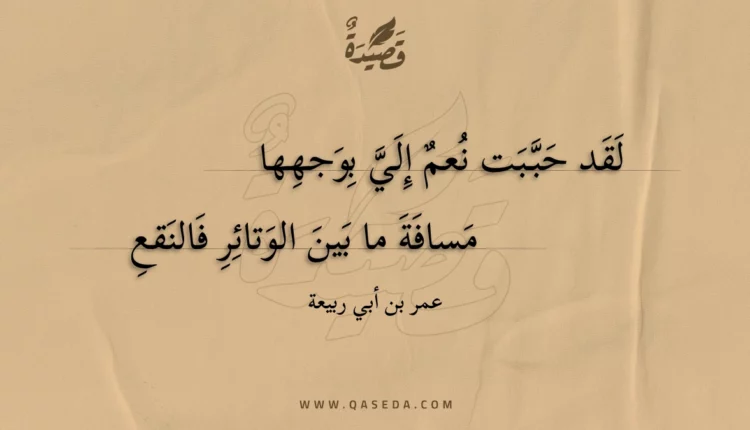 قَصِيْدَةٌ
لَقَد حَبَّبَت نُعمٌ إِلَيَّ بِوَجهِها
مَسافَةَ ما بَينَ الوَتائِرِ فَالنَقعِ
عمر بن أبي ربيعة
WWW.QASEDA.COM